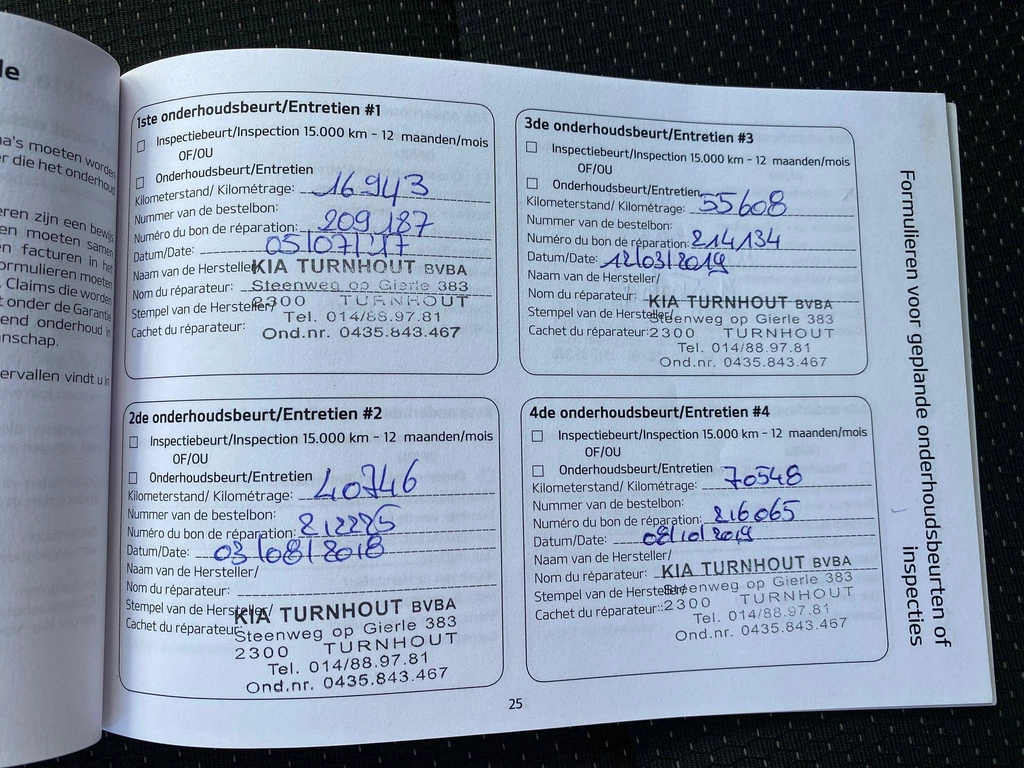 le
na's moeten worden
r die het onderhoud
eren zijn een bewijs
en moeten samen
n facturen in het
ormulieren moeten
. Claims die worden
t onder de Garantie
end onderhoud in
nschap.
ervallen vindt u in
1ste onderhoudsbeurt/Entretien #1
Inspectiebeurt/Inspection 15.000 km - 12 maanden/mois
OF/OU
Onderhoudsbeurt/Entretien
Kilometerstand/ Kilométrage: 16943
Nummer van de bestelbon:
Numéro du bon de réparation: 209187
Datum/Date: 05/07/17
Naam van de Hersteller/
KIA TURNHOUT BVBA
Nom du réparateur: Steenweg op Gierle 383
Stempel van de Hersteller/ 2300 TURNHOUT
Cachet du réparateur: Tel. 014/88.97.81
Ond.nr. 0435.843.467
2de onderhoudsbeurt/Entretien #2
Inspectiebeurt/Inspection 15.000 km - 12 maanden/mois
OF/OU
Onderhoudsbeurt/Entretien
Kilometerstand/ Kilométrage: 40746
Nummer van de bestelbon:
Numéro du bon de réparation: 212285
Datum/Date: 03/08/2018
Naam van de Hersteller/
Nom du réparateur:
Stempel van de Hersteller/ KIA TURNHOUT BVBA
Cachet du réparateur: Steenweg op Gierle 383
2300 TURNHOUT
Tel. 014/88.97.81
Ond.nr. 0435.843.467
3de onderhoudsbeurt/Entretien #3
Inspectiebeurt/Inspection 15.000 km - 12 maanden/mois
OF/OU
Onderhoudsbeurt/Entretien
Kilometerstand/ Kilométrage: 55608
Nummer van de bestelbon:
Numéro du bon de réparation: 214134
Datum/Date: 12/03/2019
Naam van de Hersteller/
Nom du réparateur: KIA TURNHOUT BVBA
Stempel van de Hersteller/ Steenweg op Gierle 383
Cachet du réparateur: 2300 TURNHOUT
Tel. 014/88.97.81
Ond.nr. 0435.843.467
4de onderhoudsbeurt/Entretien #4
Inspectiebeurt/Inspection 15.000 km - 12 maanden/mois
OF/OU
Onderhoudsbeurt/Entretien
Kilometerstand/ Kilométrage: 70548
Nummer van de bestelbon:
Numéro du bon de réparation: 216065
Datum/Date: 08/10/2019
Naam van de Hersteller/
Nom du réparateur: KIA TURNHOUT BVBA
Stempel van de Hersteller/ Steenweg op Gierle 383
Cachet du réparateur:: 2300 TURNHOUT
Tel. 014/88.97.81
Ond.nr. 0435.843.467
Formulieren voor geplande onderhoudsbeurten of
inspecties
25